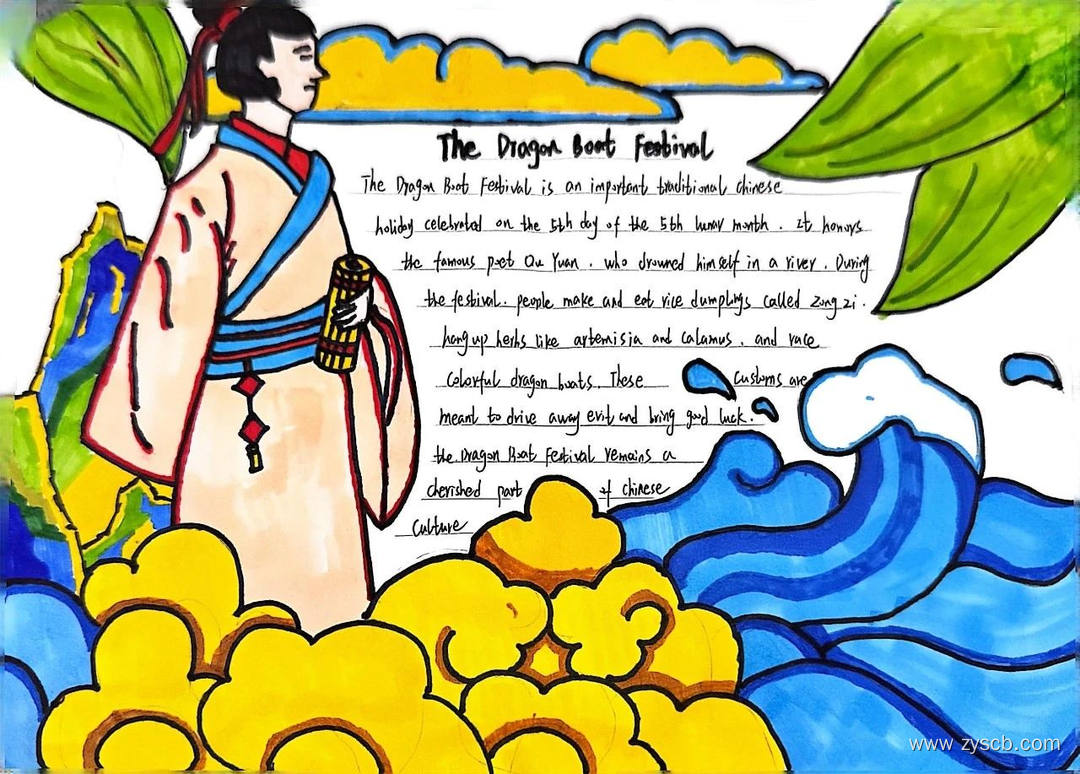 The Dragon Boat Festival
The Dragon Boat Festival is an important traditional chinese
holiday celebrated on the 5th day of the 5th lunar month. It honors
the famous poet Qu Yuan. who drowned himself in a river. During
the festival. people make and eat rice dumplings called zongzi.
hang up herbs like artemisia and calamus. and race
colorful dragon boats. These customs are
meant to drive away evil and bring good luck.
the Dragon Boat Festival remains a
cherished part of chinese
culture
www.zyscb.com